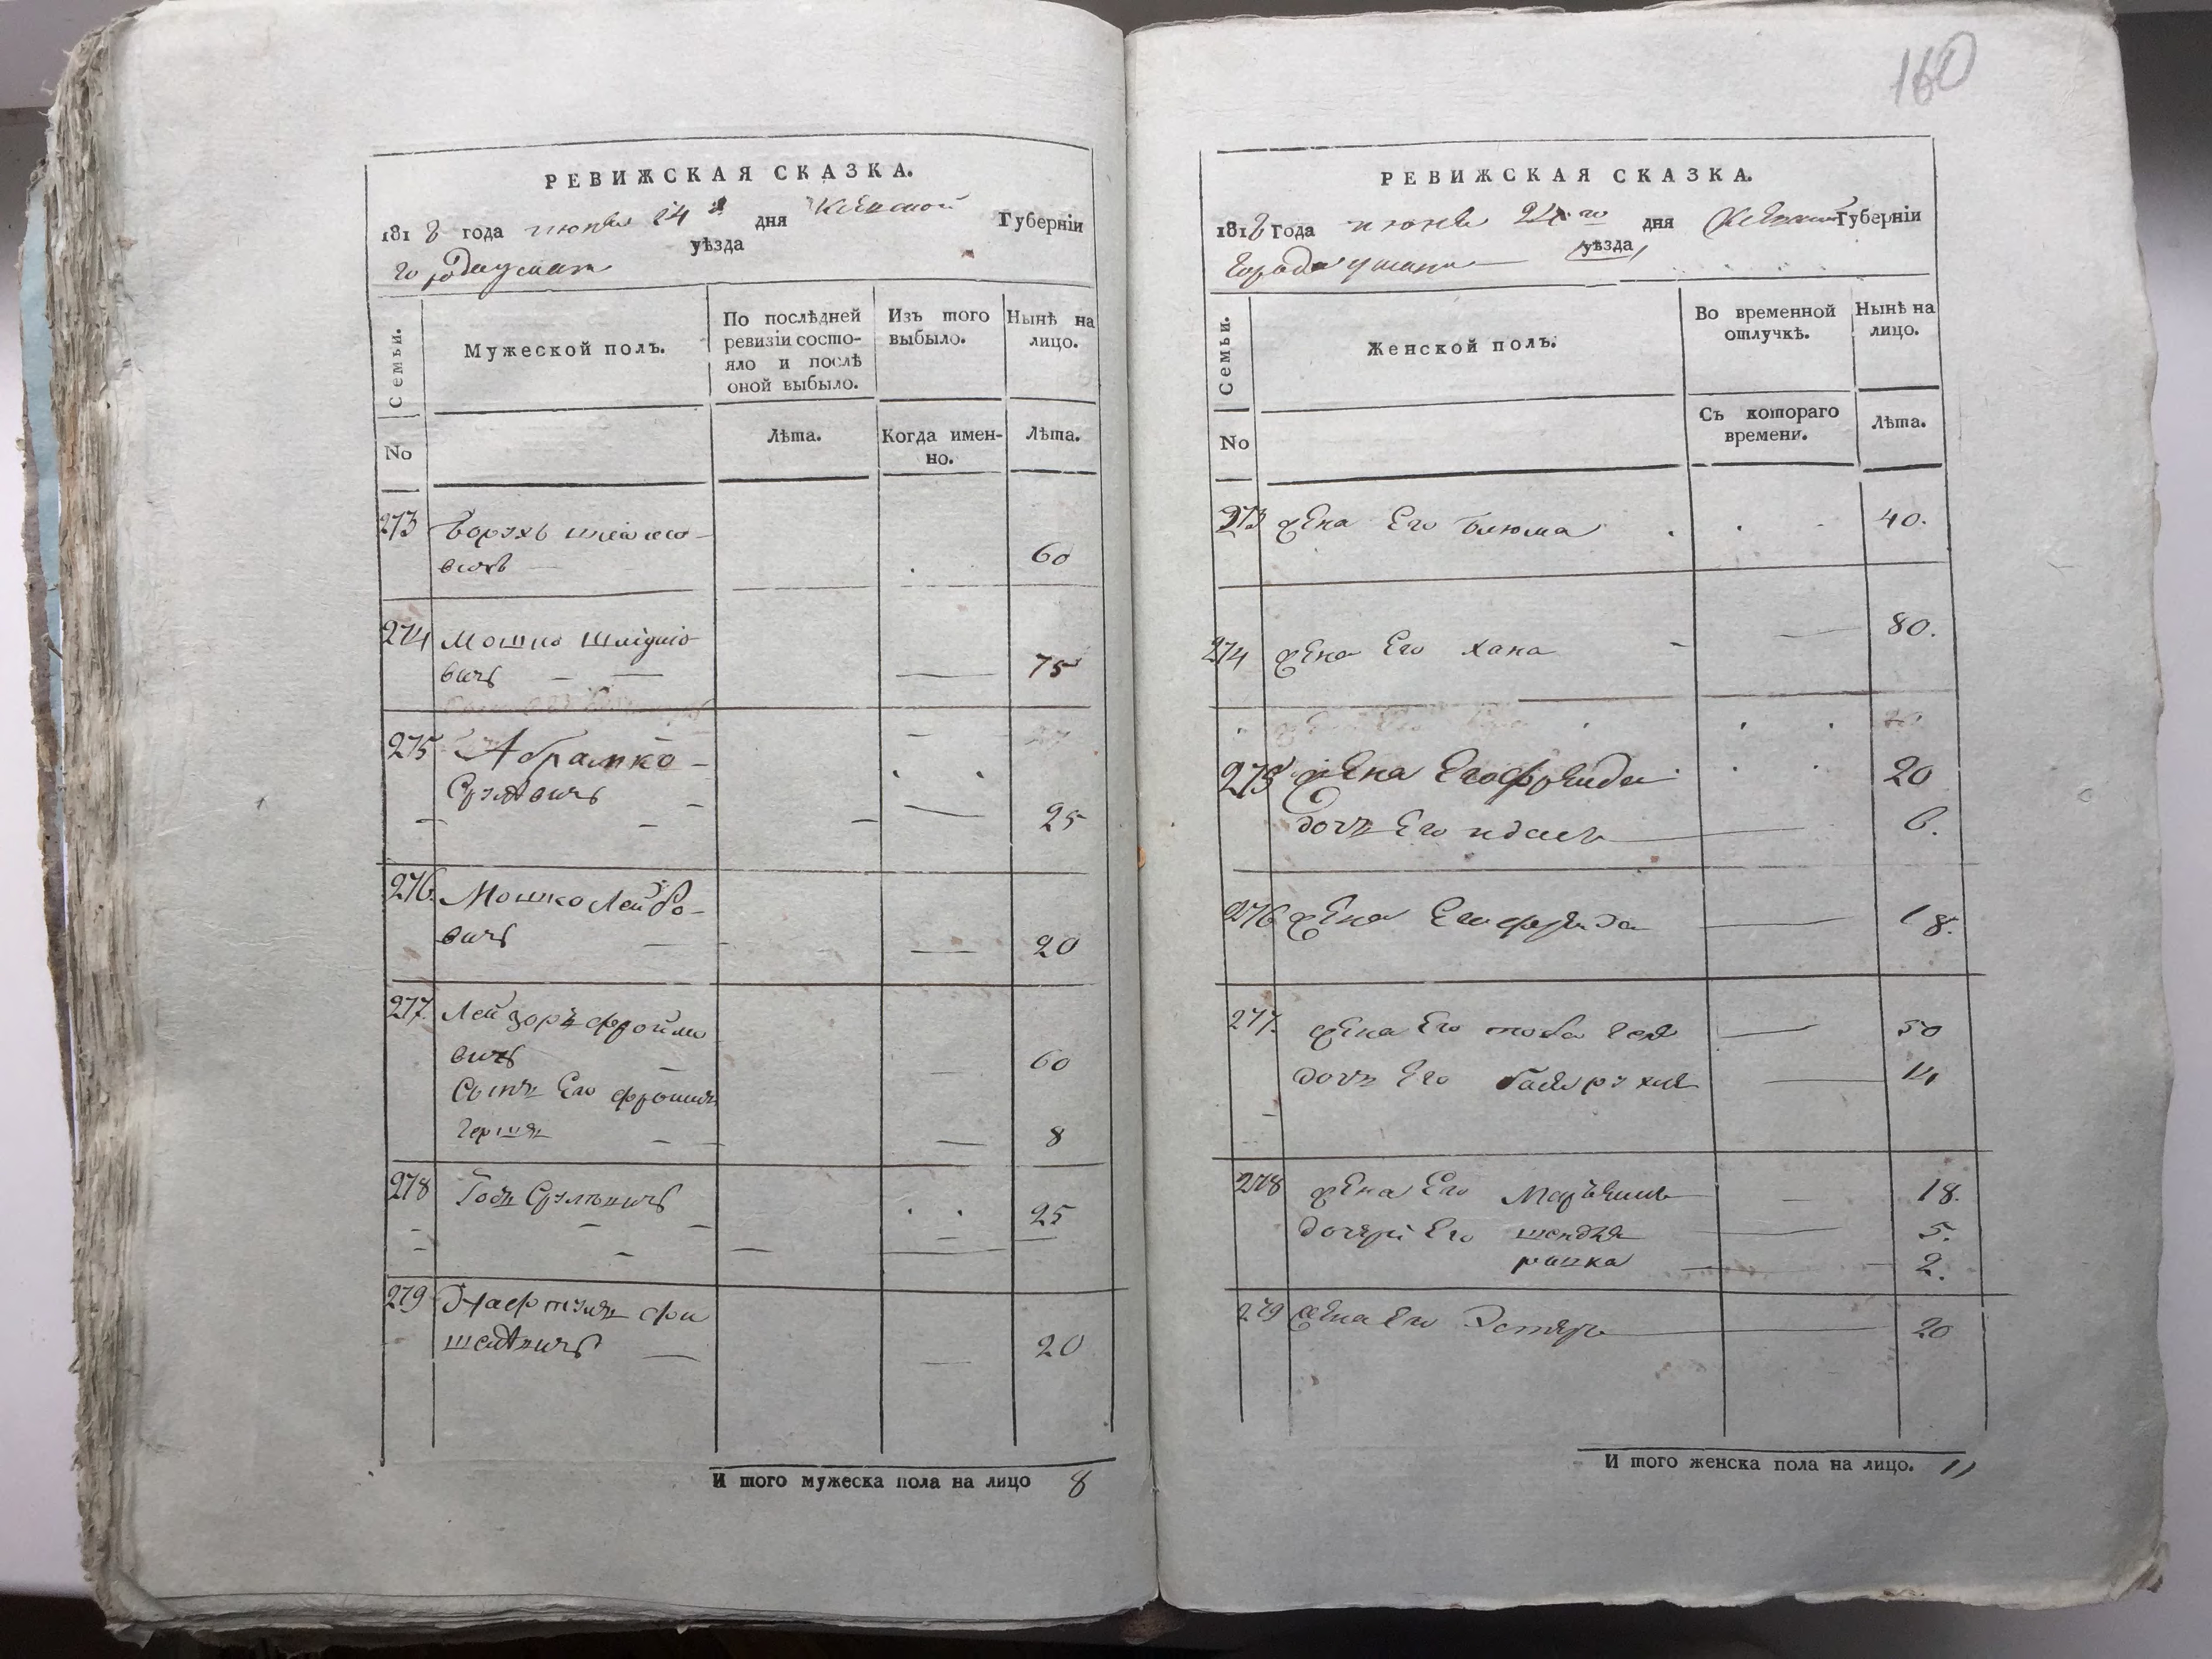 160
РЕВИЖСКАЯ СКАЗКА.
1818 года июня 24 дня Киевской Губерніи
города умани уѣзда
Семьи.
Мужеской полъ.
По послѣдней ревизіи состо-
яло и послѣ
оной выбыло.
Изъ того
выбыло.
Нынѣ на
лицо.
No
Лѣта.
Когда имен-
но.
Лѣта.
273 Борухъ
вичъ 60
274 Мошко
вичъ 75
275 Абрамко
Срулевичъ
25
276. Мошко Лейбо-
вичъ 20
277. Лейзоръ Фроймо
вичъ 60
Сынъ Его Фроимъ
Гершъ 8
278 Срулевичъ
25
279 Нафтула Фи
шелевичъ 20
И того мужеска пола на лицо 8
РЕВИЖСКАЯ СКАЗКА.
1818 Года июня 24го дня Киевской Губерніи
города умани уѣзда
Семьи.
Женской полъ.
Во временной
отлучкѣ.
Нынѣ на
лицо.
No
Съ котораго
времени.
Лѣта.
273 жена Его Блюма 40.
274 жена Его хана 80.
275 жена Его Фрейда 20
дочь Его 6.
276 жена Его фрейда 18.
277. жена Его 50
дочь Его 14
278 жена Его 18.
дочери Его шендля 5.
2.
279 жена Его Эстеръ 20
И того женска пола на лицо. 11